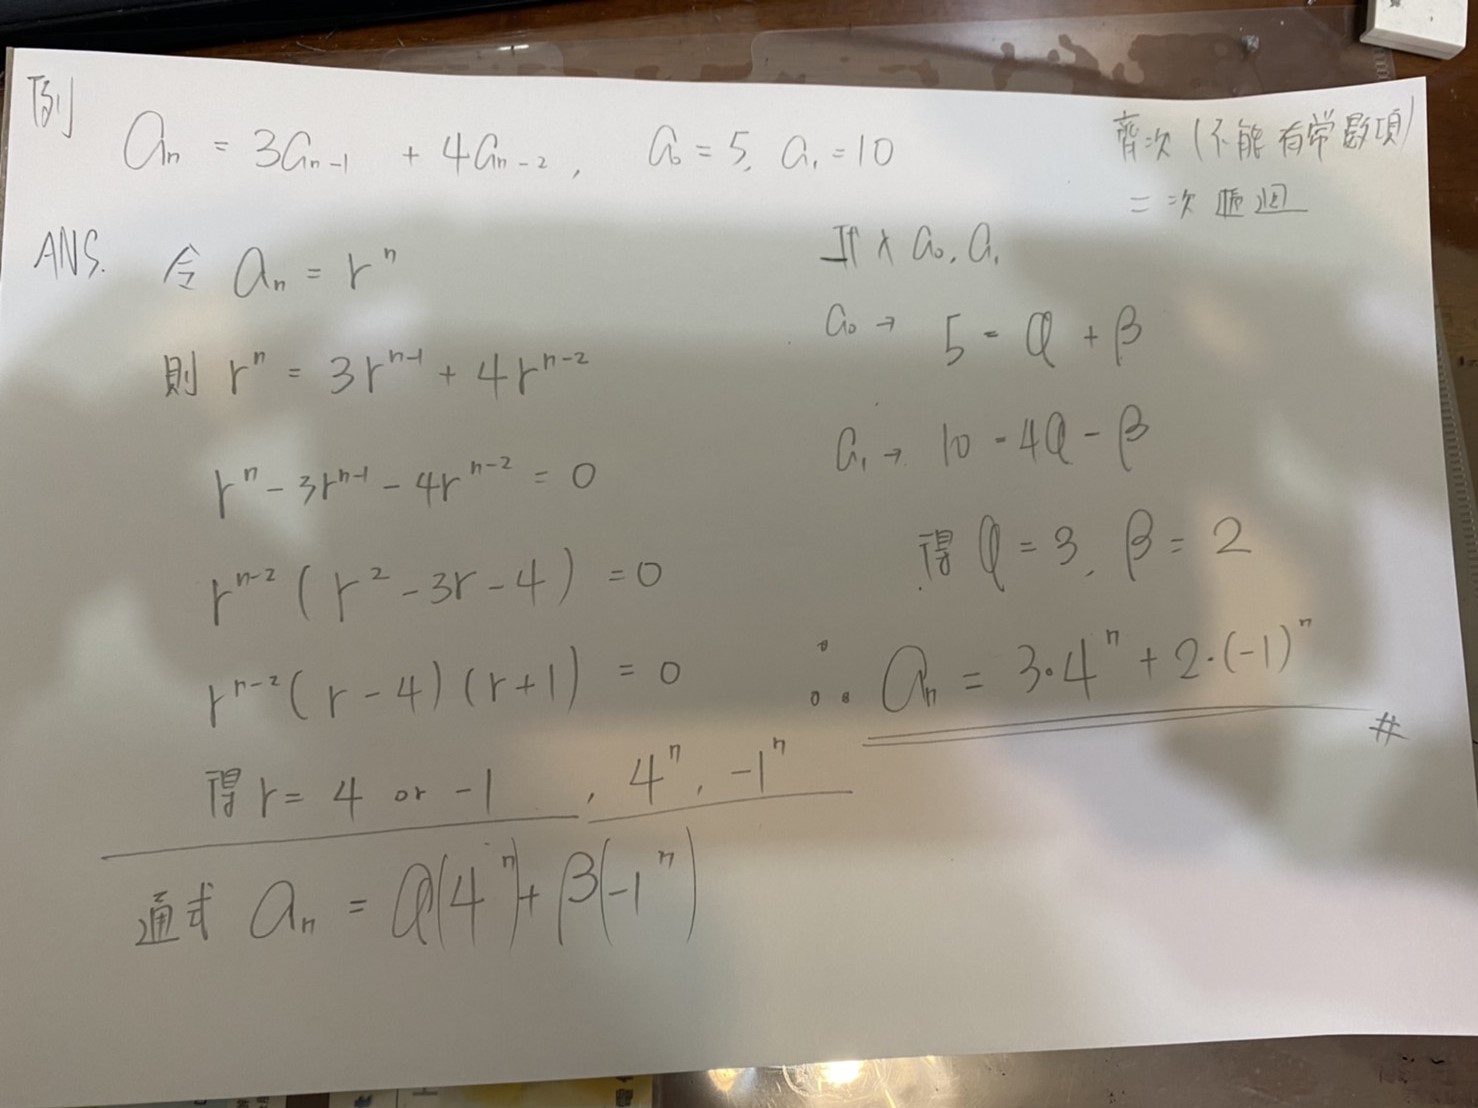 例
aₙ = 3aₙ₋₁ + 4aₙ₋₂, a₀ = 5, a₁ = 10
齊次 (不能有常數項)
二次遞迴
ANS. 令 aₙ = rⁿ
則 rⁿ = 3rⁿ⁻¹ + 4rⁿ⁻²
rⁿ - 3rⁿ⁻¹ - 4rⁿ⁻² = 0
rⁿ⁻² (r² - 3r - 4) = 0
rⁿ⁻² (r - 4) (r + 1) = 0
得 r = 4 or -1 , 4ⁿ, -1ⁿ
通式 aₙ = α(4ⁿ) + β(-1ⁿ)
代入 a₀, a₁
a₀ → 5 = α + β
a₁ → 10 = 4α - β
得 α = 3, β = 2
∴ aₙ = 3·4ⁿ + 2·(-1)ⁿ
#